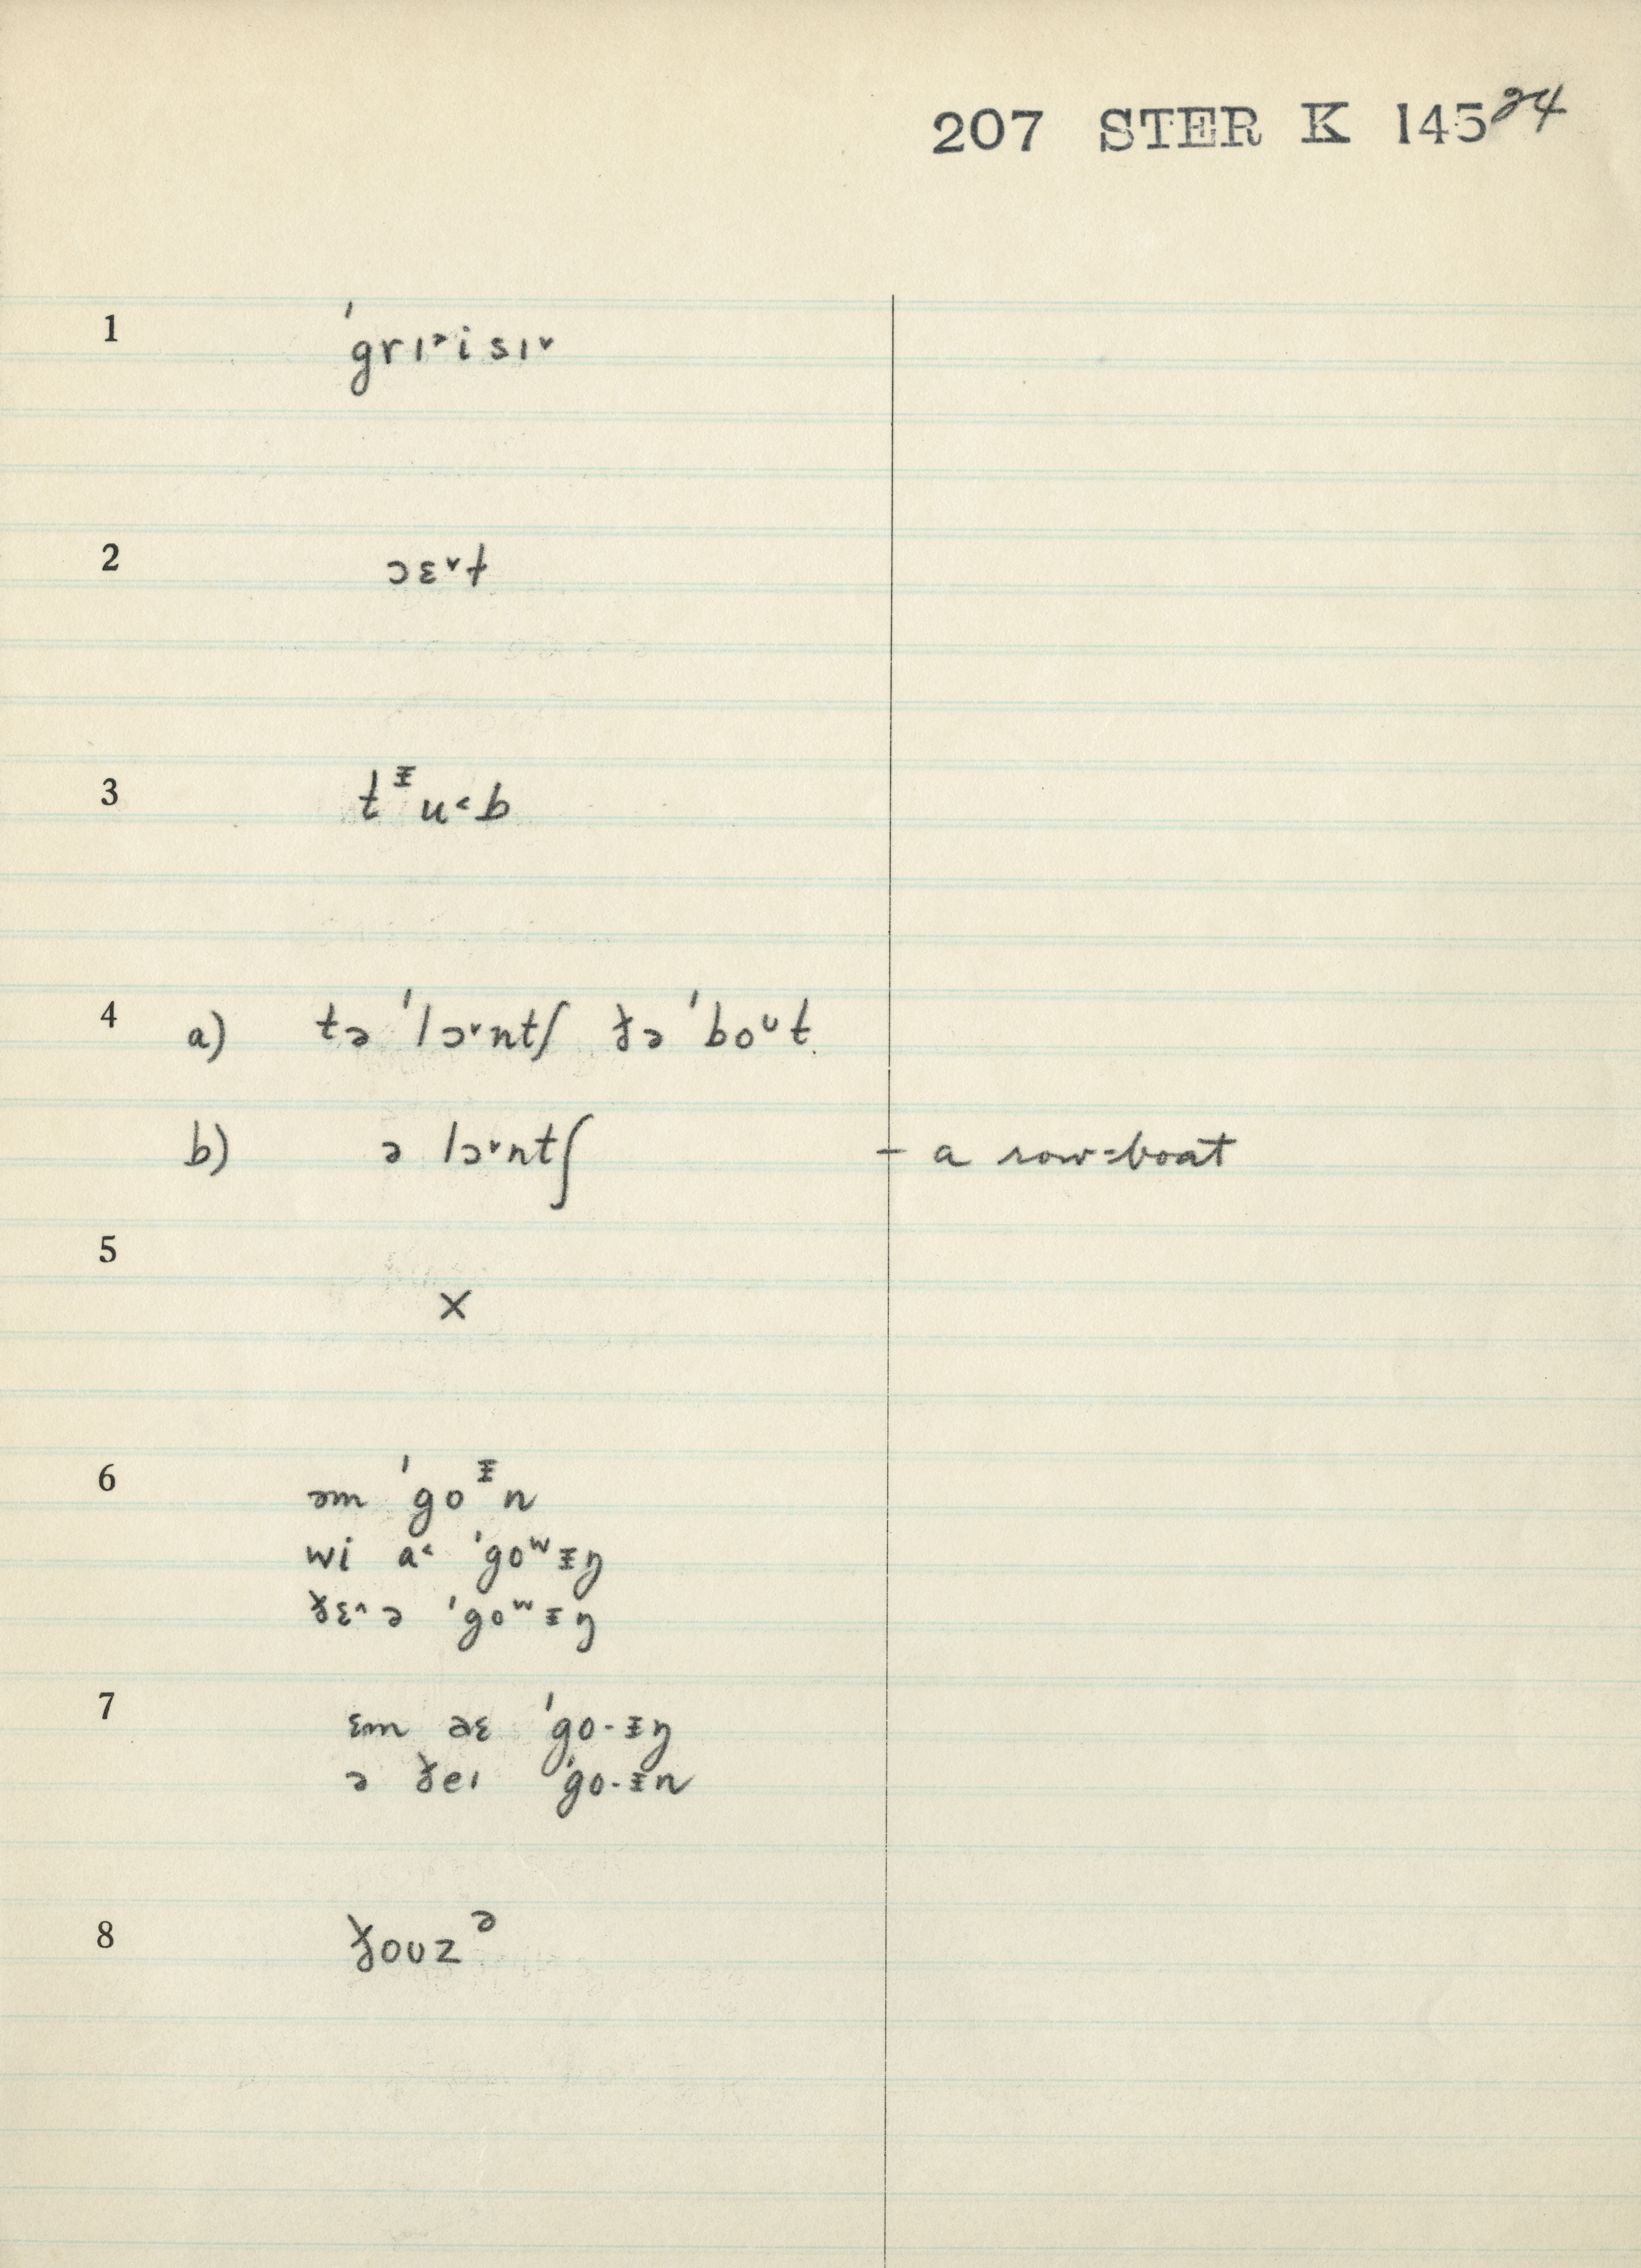 207 STER K 145 24
1 ˈgrɪ˃isɪ˅
2 ɔɛ˅t
3 tᵻu˂b
4 a) tə ˈlɔ˅ntʃ ɣə ˈboᶷt
b) ə lɔ˅ntʃ – a row-boat
5 ×
6 əm ˈgoᵻn
wi a˂ ˈgoʷᵻŋ
ɣɛ˄ ə ˈgoʷᵻŋ
7 ɛm aɛ ˈgo-ᵻŋ
ə ɣeɪ ˈgo-ᵻn
8 ɣoʊzᵊ